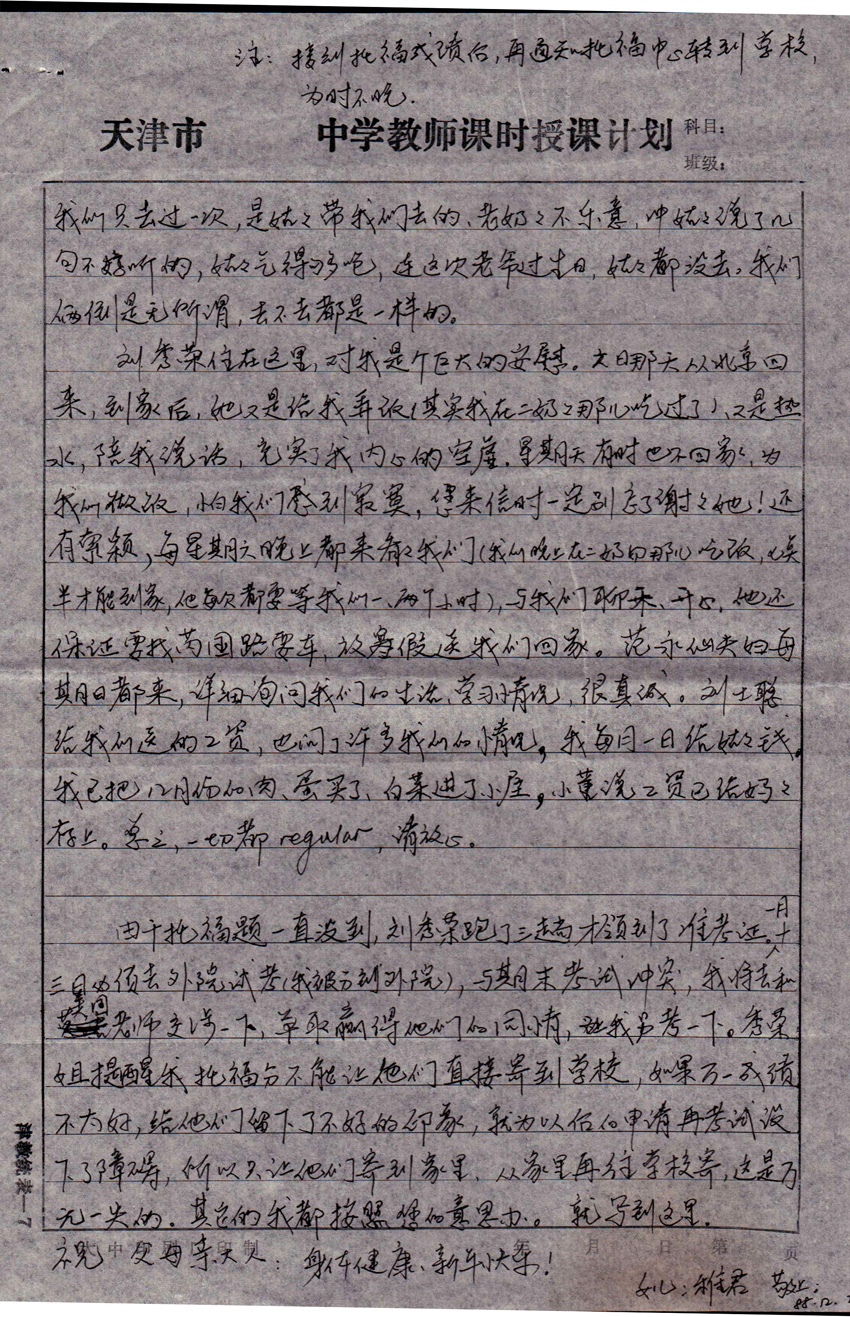 注：接到托福成绩后，再通知托福中心转到学校，
为时不晚．
天津市 中学教师课时授课计划 科目：
班级：
我们只去过一次，是姑々带我们去的、老奶々不乐意，冲姑々说了几
句不好听的，姑々气得够呛，连这次老爷过生日，姑々都没去。我们
俩倒是无所谓，去不去都是一样的。
刘秀荣住在这里，对我是个巨大的安慰。六日那天从北京回
来，到家后，她又是给我弄饭（其实我在二奶々那儿吃过了），又是热
水，陪我说话，充实了我内心的空虚．星期天有时也不回家，为
我们做饭，怕我们感到寂寞，您来信时一定别忘了谢々她！还
有 颖，每星期六晚上都来看々我们（我们晚上在二奶奶那儿吃饭，八点
半才能到家，他每次都要等我们一、两个小时），与我们聊天、开心，他还
保证要找万国路要车，放寒假送我们回家。范永仙夫妇每
期日都来，详细询问我们的生活、学习情况，很真诚。刘士聪
给我们送的工资，也问了许多我们的情况，我每月一日给姑々钱，
我已把12月份的肉、蛋买了、白菜进了小屋，小董说工资已给妈々
存上。总之，一切都regular，请放心。
由于托福题一直没到，刘秀荣跑了三趟才领到了准考证。一月十
三日必须去外院试考（我被分到外院），与期末考试冲突，我将去和
美国老师交涉一下，争取赢得他们的同情，让我另考一下。秀荣
姐提醒我托福分不能让他们直接寄到学校，如果万一成绩
不太好，给他们留下了不好的印象，就为以后的申请再考试设
下了障碍，所以只让他们寄到家里．从家里再往学校寄，这是万
无一失的．其它的我都按照您的意思办。就写到这里．
祝 父母亲大人：身体健康、新年快乐！
年 月 日 第 页
女儿：雅君 敬上：
88.12.